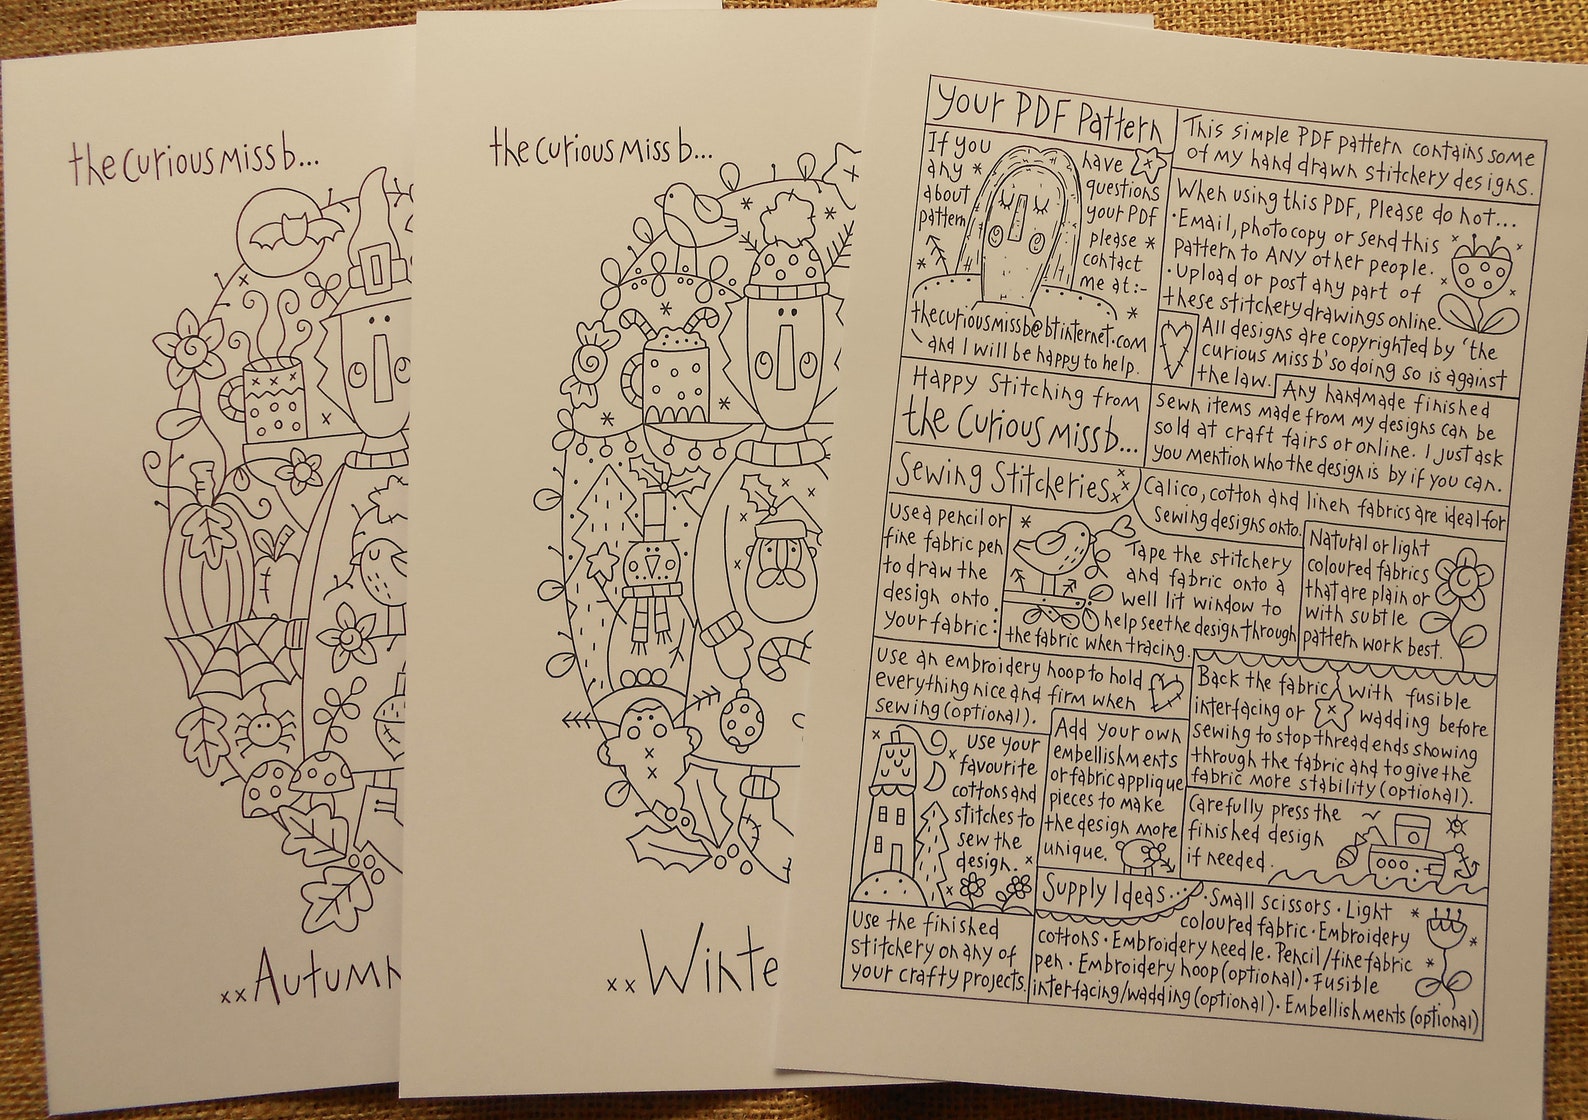 the curious miss b...
xx Autumn
the curious miss b...
xx Winte
your PDF Pattern
If you have
any questions
about your PDF
pattern please
contact
me at:-
thecuriousmissb@btinternet.com
and I will be happy to help.
This simple PDF pattern contains some
of my hand drawn stitchery designs.
When using this PDF, Please do not...
·Email, photocopy or send this
pattern to ANY other people.
·Upload or post any part of
these stitchery drawings online.
All designs are copyrighted by 'the
curious miss b' so doing so is against
the law.
Happy Stitching from
the Curious miss b...
Any handmade finished
sewn items made from my designs can be
sold at craft fairs or online. I just ask
you mention who the design is by if you can.
Sewing Stitcheries
Calico, cotton and linen fabrics are ideal for
sewing designs onto.
Use a pencil or
fine fabric pen
to draw the
design onto
your fabric:
Tape the stitchery
and fabric onto a
well lit window to
help see the design through
the fabric when tracing.
Natural or light
coloured fabrics
that are plain or
with subtle
pattern work best.
Use an embroidery hoop to hold
everything nice and firm when
sewing (optional).
Back the fabric with fusible
interfacing or wadding before
sewing to stop thread ends showing
through the fabric and to give the
fabric more stability (optional).
use your
favourite
cottons and
stitches to
sew the
design.
Add your own
embellishments
or fabric applique
pieces to make
the design more
unique.
Carefully press the
finished design
if needed.
Use the finished
stitchery on any of
your crafty projects.
Supply Ideas... ·Small scissors · Light
coloured fabric · Embroidery
cottons · Embroidery needle. Pencil/fine fabric
pen · Embroidery hoop (optional) · Fusible
interfacing/wadding (optional) · Embellishments (optional)